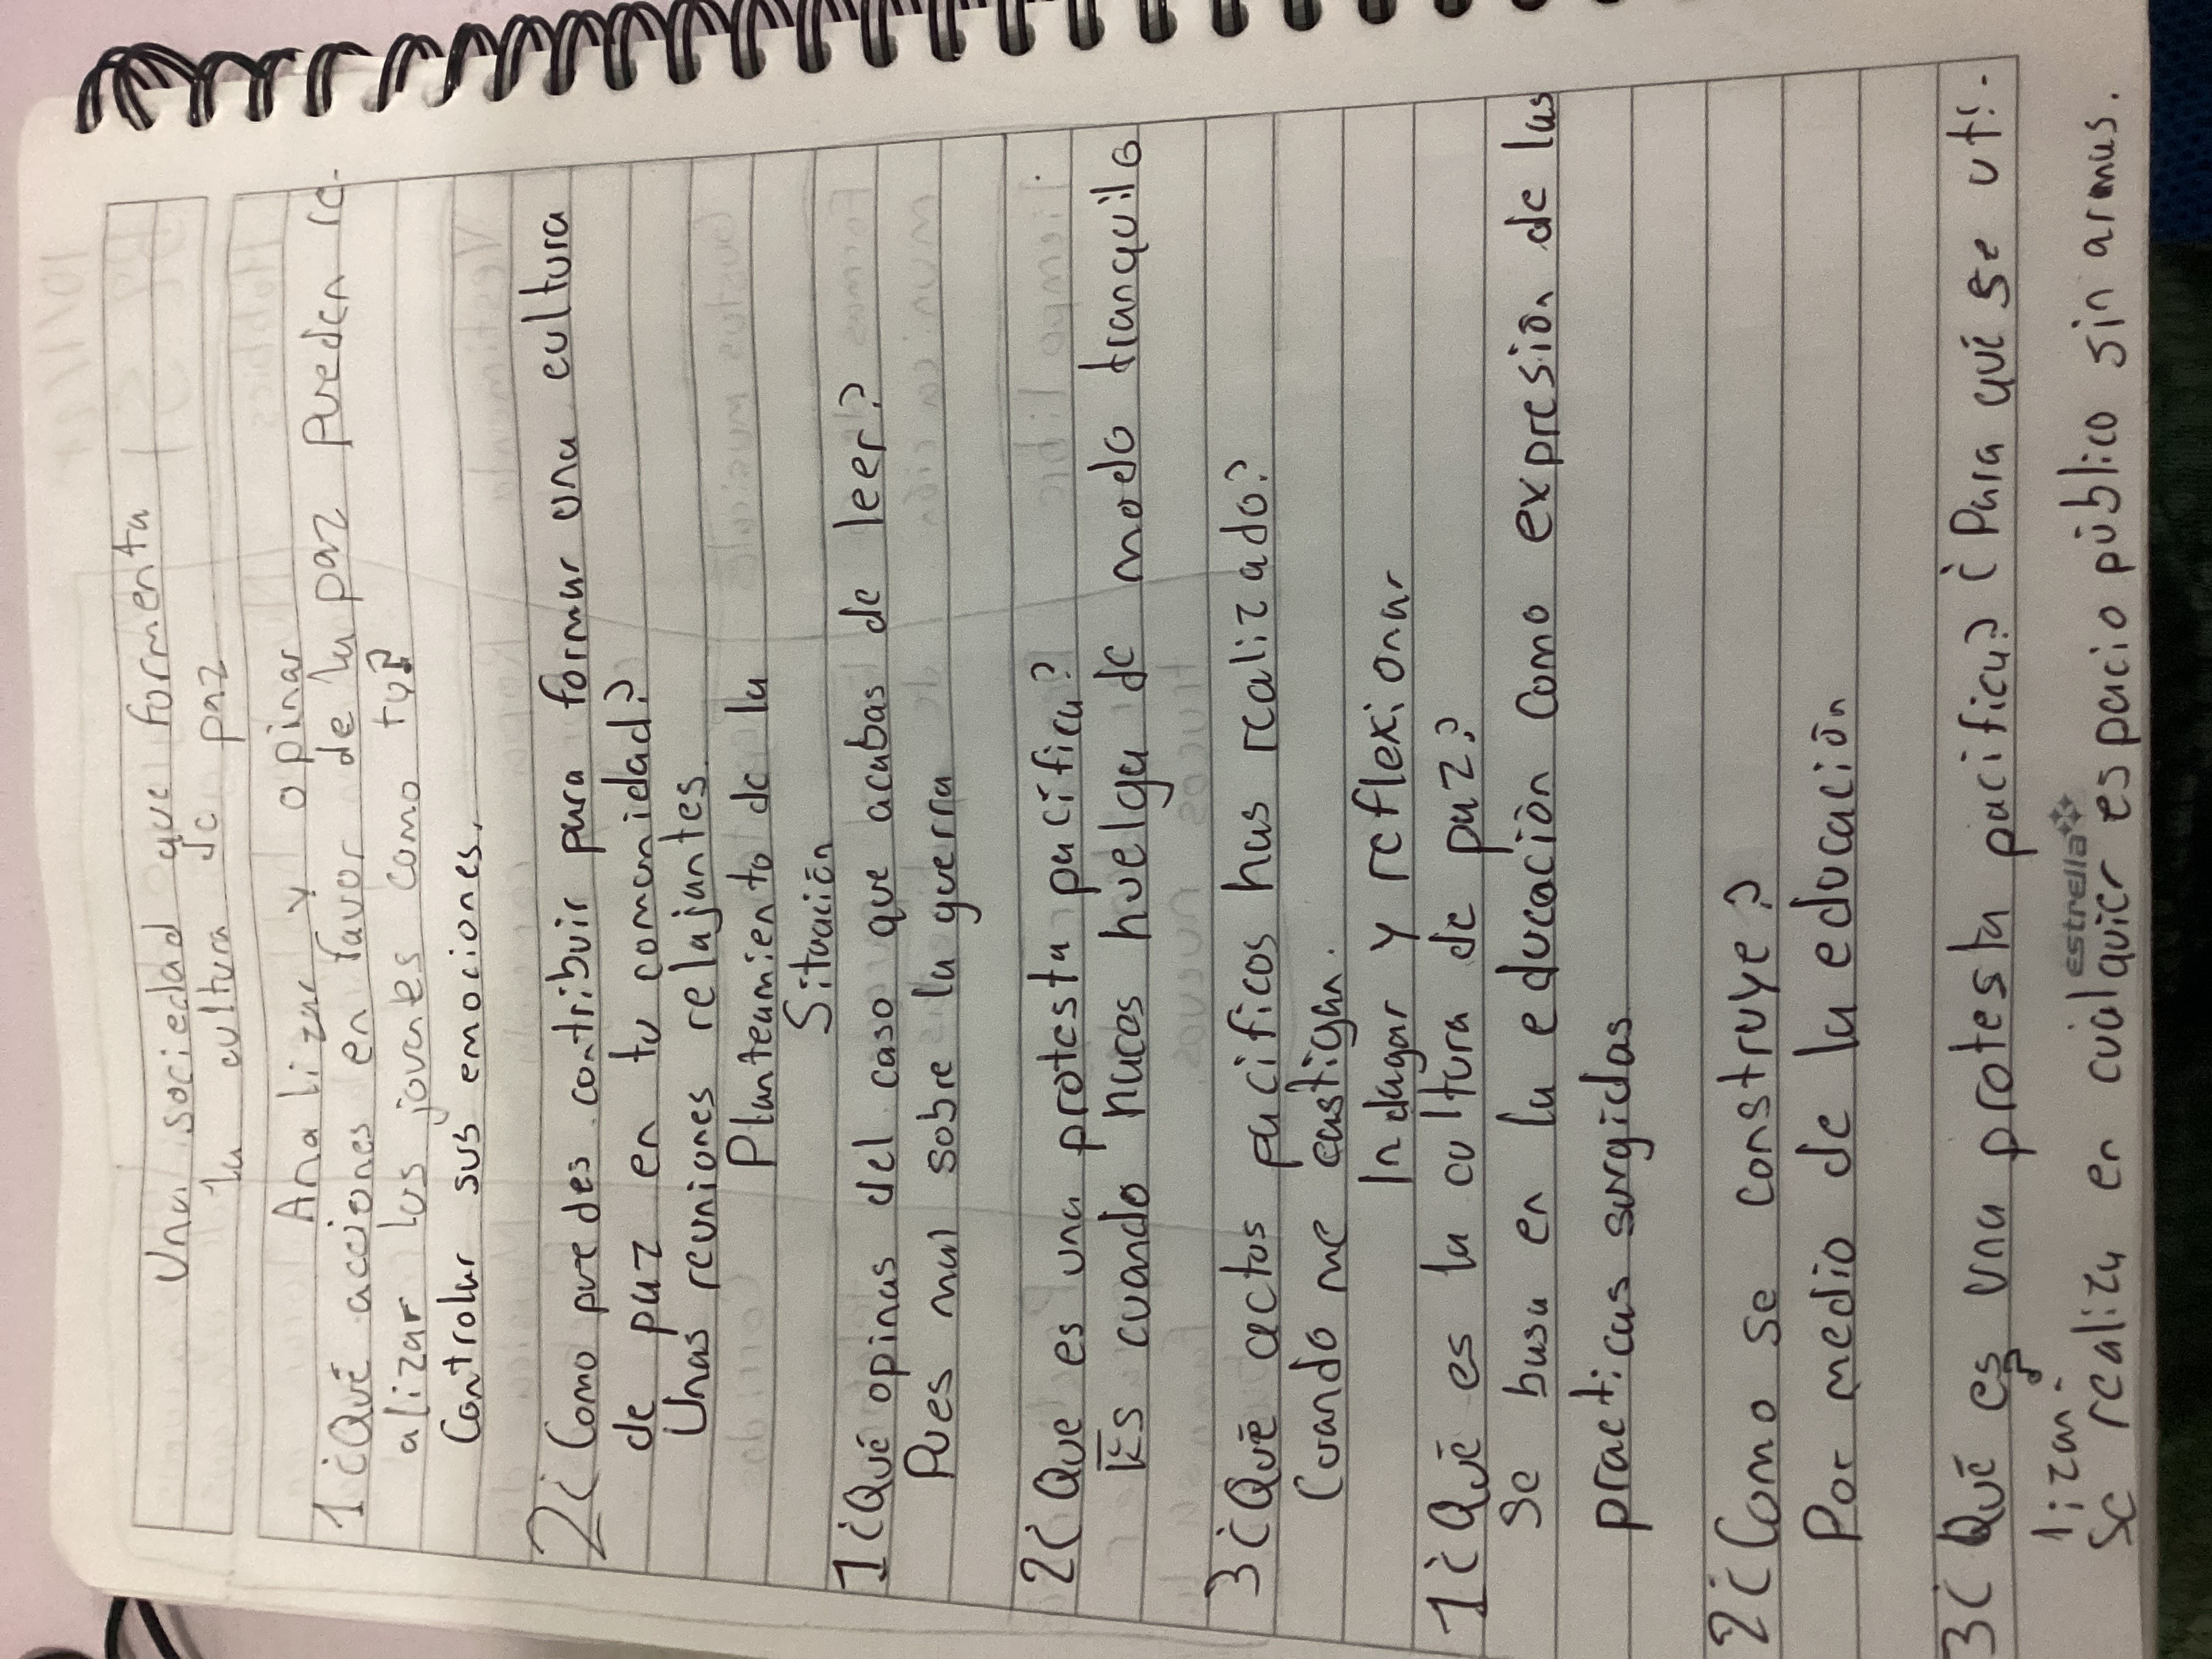 Una sociedad que formenta
la cultura de paz
Analizar y opinar
1¿Qué acciones en favor de la paz pueden re-
alizar los jovenes como tu?
Controlar sus emociones.
2¿Como puedes contribuir para formar una cultura
de paz en tu comunidad?
Unas reuniones relajantes
Planteamiento de la
Situación
1¿Qué opinas del caso que acabas de leer?
Pues mal sobre la guerra
2¿Que es una protesta pacífica?
Es cuando haces huelga de modo tranquilo
3¿Qué actos pacificos has realizado?
Cuando me castigan.
Indagar y reflexionar
1¿Qué es la cultura de paz?
Se basa en la educación como expresión de las
practicas surgidas
2¿Como se construye?
Por medio de la educación
3¿Qué es una protesta pacifica? ¿Para qué se uti-
lizan
estrella
Se realiza en cualquier espacio público sin armas.